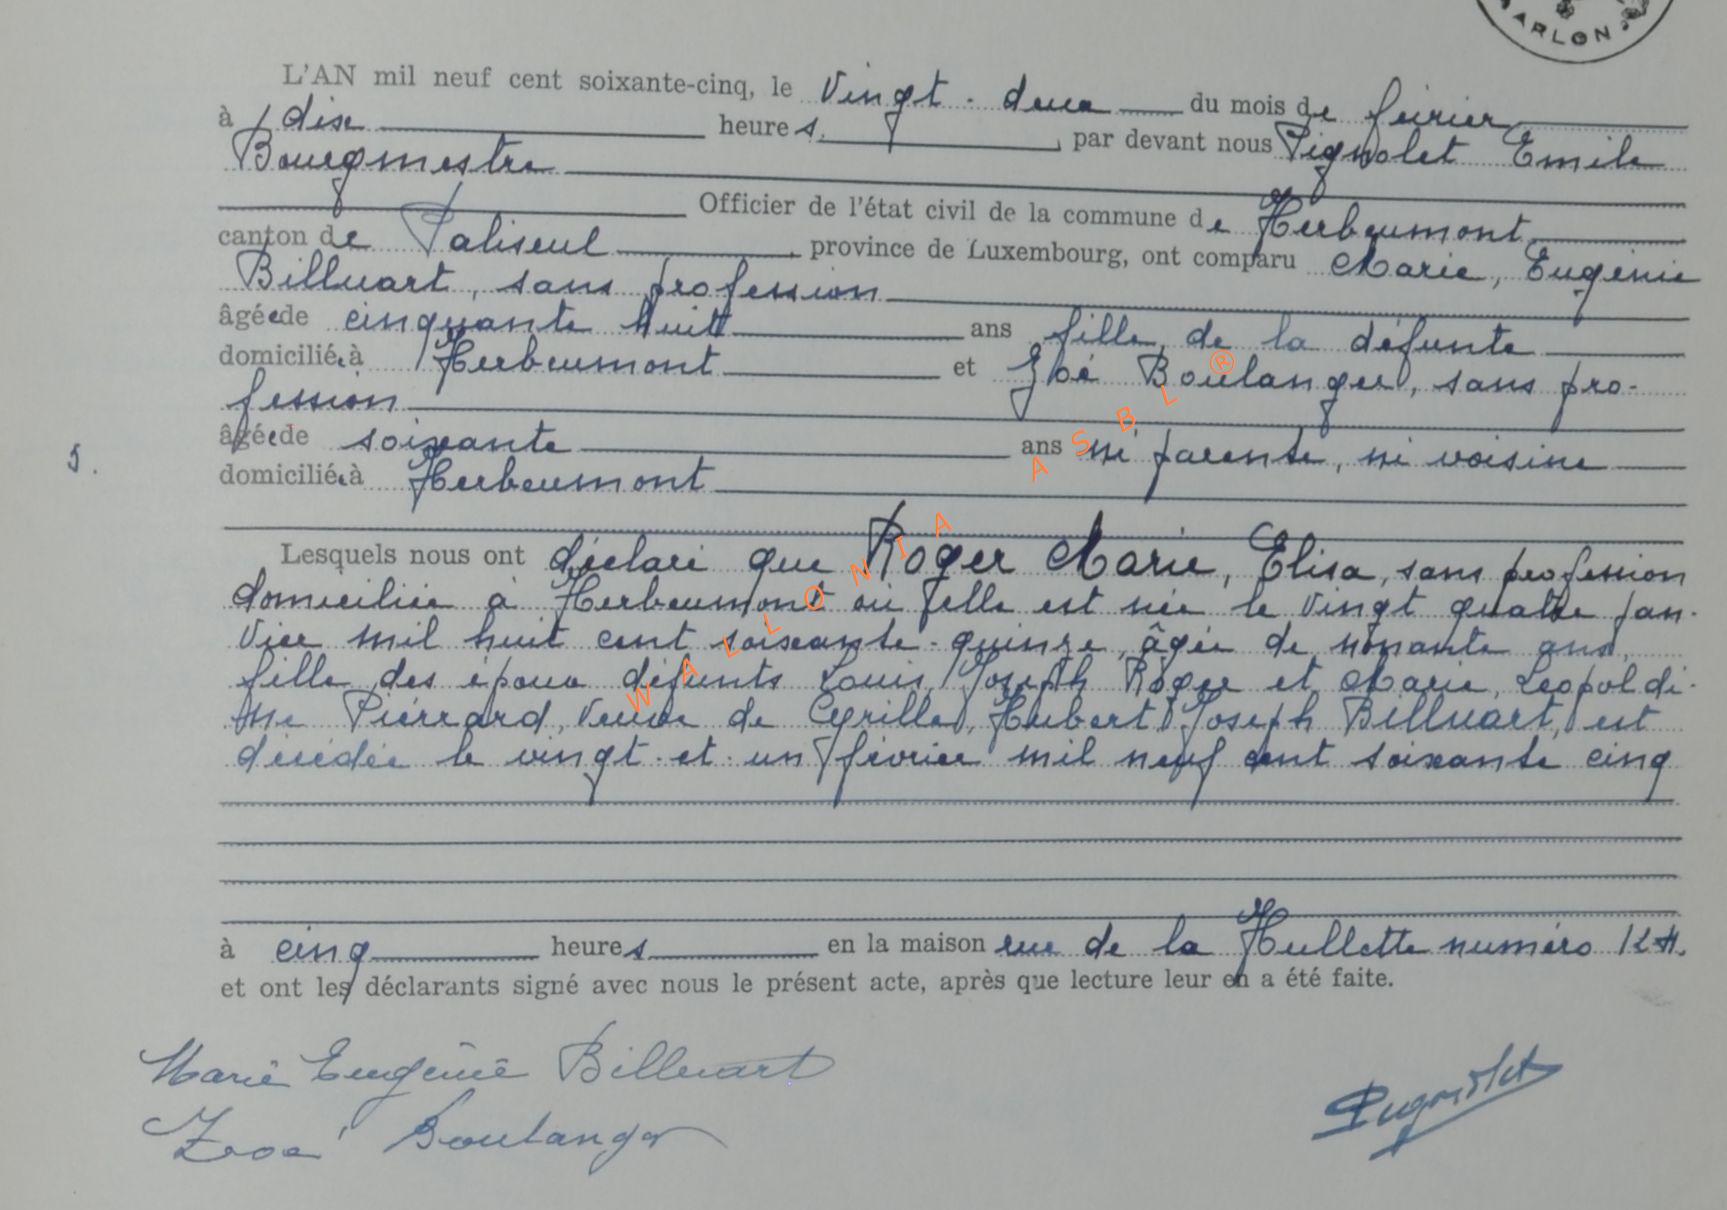 ARLON
L'AN mil neuf cent soixante-cinq, le vingt-deux du mois de février
à dix heures par devant nous Pignolet Emile
Bourgmestre
Officier de l'état civil de la commune de Herbeumont
canton de Paliseul province de Luxembourg, ont comparu Marie, Eugénie
Billuart, sans profession
âgée de cinquante huit ans fille de la défunte
domiciliée à Herbeumont et Zoé Boulanger, sans pro-
fession
âgée de soixante ans ni parente, ni voisine
5.
domiciliée à Herbeumont
Lesquels nous ont déclaré que Roger Marie, Elisa, sans profession
domiciliée à Herbeumont où elle est née le vingt quatre jan-
vier mil huit cent soixante-quinze, âgée de nonante ans,
fille des époux défunts Louis, Joseph Roger et Marie, Léopoldi-
ne Pierrard, veuve de Cyrille, Hubert, Joseph Billuart, est
décédée le vingt-et-un février mil neuf cent soixante cinq
à cinq heures en la maison rue de la Hullette numéro
et ont les déclarants signé avec nous le présent acte, après que lecture leur en a été faite.
Marie Eugénie Billuart
Zoé Boulanger
Pignolet
WALLONIA ASBL ®